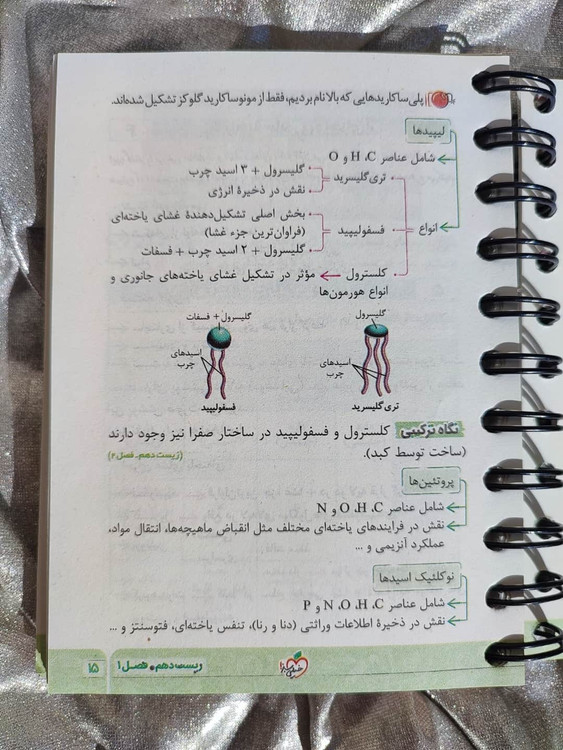 پلی‌ساکاریدهایی که بالا نام بردیم، فقط از مونوساکارید گلوکز تشکیل شده‌اند.
لیپیدها
شامل عناصر H ،C و O
انواع
تری‌گلیسرید
گلیسرول + ۳ اسید چرب
نقش در ذخیرهٔ انرژی
فسفولیپید
بخش اصلی تشکیل‌دهندهٔ غشای یاخته‌ای
(فراوان‌ترین جزء غشا)
گلیسرول + ۲ اسید چرب + فسفات
کلسترول
مؤثر در تشکیل غشای یاخته‌های جانوری و
انواع هورمون‌ها
گلیسرول
اسیدهای
چرب
تری‌گلیسرید
گلیسرول + فسفات
اسیدهای
چرب
فسفولیپید
نگاه ترکیبی کلسترول و فسفولیپید در ساختار صفرا نیز وجود دارند
(ساخت توسط کبد). (زیست دهم ـ فصل ۲)
پروتئین‌ها
شامل عناصر O ،H ،C و N
نقش در فرایندهای یاخته‌ای مختلف مثل انقباض ماهیچه‌ها، انتقال مواد،
عملکرد آنزیمی و ...
نوکلئیک اسیدها
شامل عناصر N ،O ،H ،C و P
نقش در ذخیرهٔ اطلاعات وراثتی (دنا و رنا)، تنفس یاخته‌ای، فتوسنتز و ...
زیست دهم • فصل ۱
۱۵